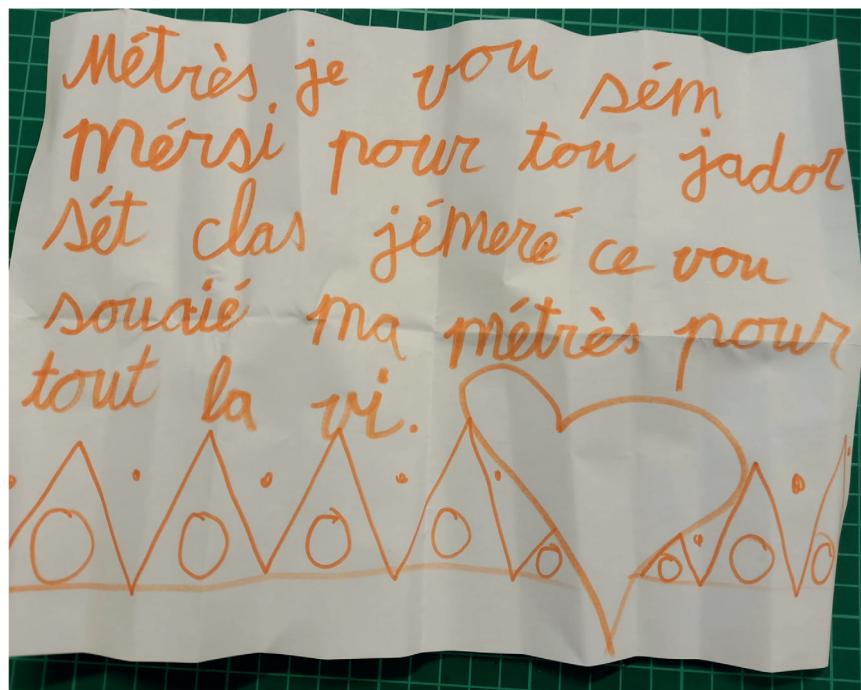 Métrès je vou sém
mérsi pour tou jador
sét clas jémeré ce vou
souaié ma métrès pour
tout la vi.